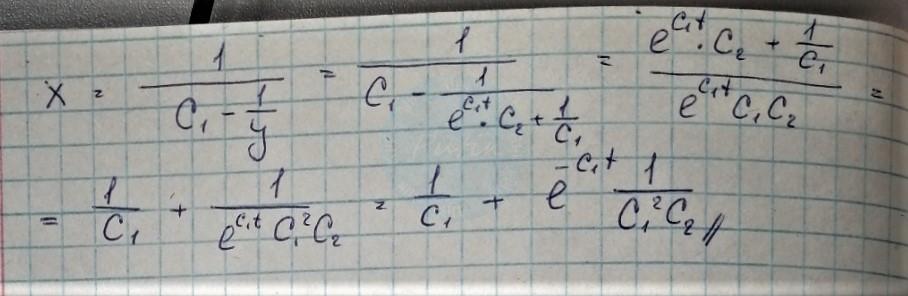 x = \frac{1}{C_1 - \frac{1}{y}} = \frac{1}{C_1 - \frac{1}{e^{C_1 t} \cdot C_2 + \frac{1}{C_1}}} = \frac{e^{C_1 t} \cdot C_2 + \frac{1}{C_1}}{e^{C_1 t} C_1 C_2} =
= \frac{1}{C_1} + \frac{1}{e^{C_1 t} C_1^2 C_2} = \frac{1}{C_1} + e^{-C_1 t} \frac{1}{C_1^2 C_2} //